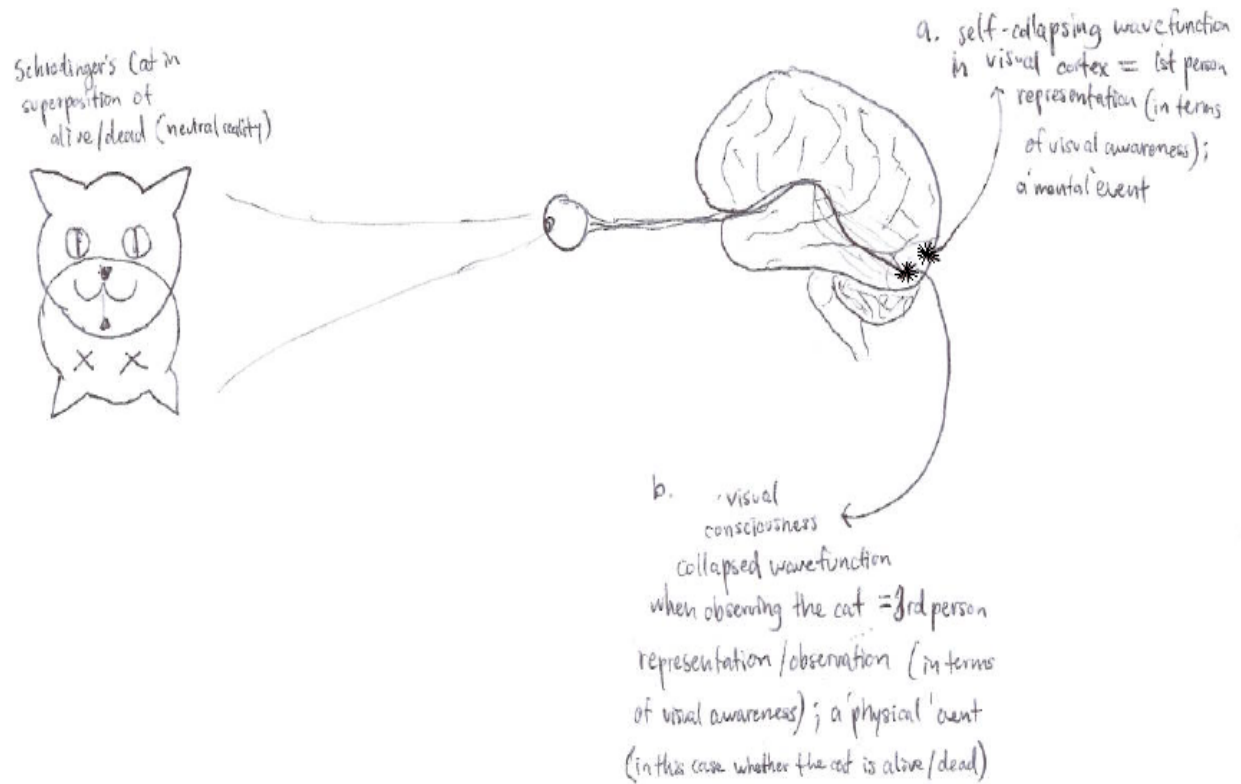 Schrodinger's Cat in
superposition of
alive/dead (neutral reality)
a. self-collapsing wavefunction
in visual cortex = 1st person
representation (in terms
of visual awareness);
a 'mental' event
b. visual
consciousness
collapsed wavefunction
when observing the cat = 3rd person
representation/observation (in terms
of visual awareness); a 'physical' event
(in this case whether the cat is alive/dead)